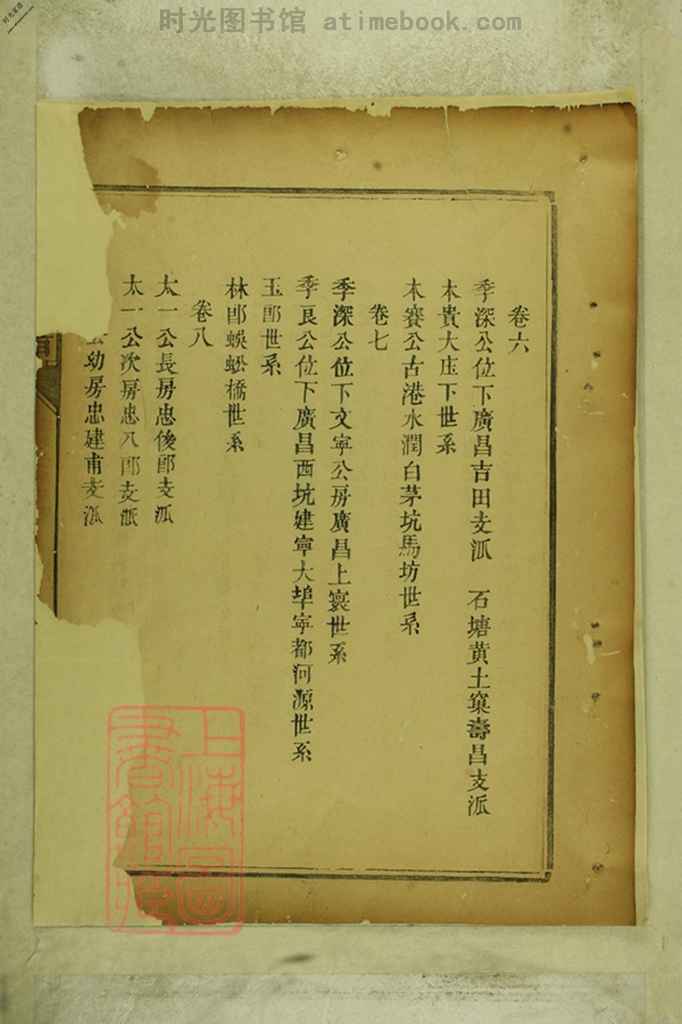 时光图书馆 atimebook.com
卷六
季深公位下廣昌吉田支派 石塘黃土窠壽昌支派
木貴大庄下世系
木賽公古港水潤白茅坑馬坊世系
卷七
季深公位下文寧公房廣昌上寰世系
季良公位下廣昌西坑建寧大埠寧都河源世系
玉郎世系
林郎蜈蚣橋世系
卷八
太一公長房忠後郎支派
太一公次房忠八郎支派
公幼房忠建甫支派
上海圖書館藏